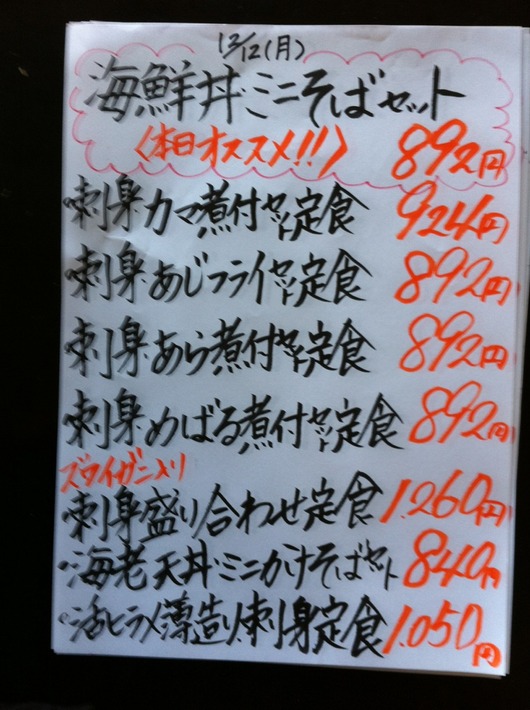 12/12(月)
海鮮丼・ミニそばセット
〈本日オススメ!!〉 892円
・刺身カマ煮付セット定食 924円
・刺身あじフライセット定食 892円
・刺身あら煮付セット定食 892円
・刺身めばる煮付セット定食 892円
ズワイガニ入り
・刺身盛り合わせ定食 1.260円
・海老天丼・ミニかけそばセット 840円
・活ヒラメ薄造り刺身定食 1.050円